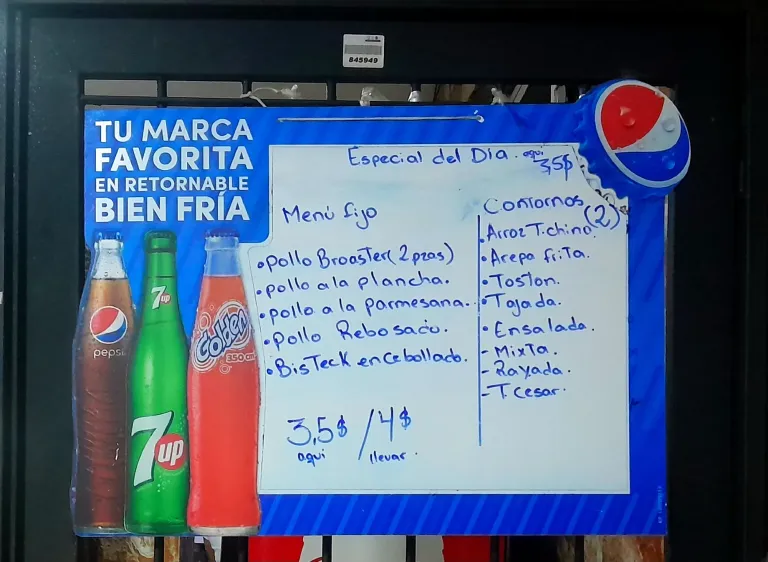 845949
TU MARCA
FAVORITA
EN RETORNABLE
BIEN FRÍA
Especial del Dia. aqui 3,5$
Menú fijo
•Pollo Broaster (2 pzas)
•pollo a la plancha.
•pollo a la parmesana.
•Pollo Rebosado.
•BisTeck encebollado.
3,5$ / 4$
aqui llevar.
Contornos (2)
•Arroz T.chino.
•Arepa friTa.
•Toston.
•Tajada.
•Ensalada.
- MixTa.
- Rayada.
- T. cesar.
pepsi
7up
7up
Golden
350 cm